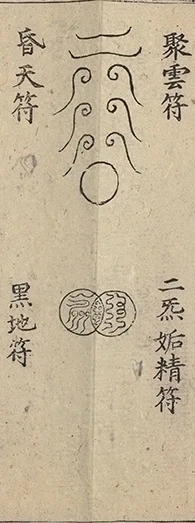 聚雲符
昏天符
二炁姤精符
黑地符